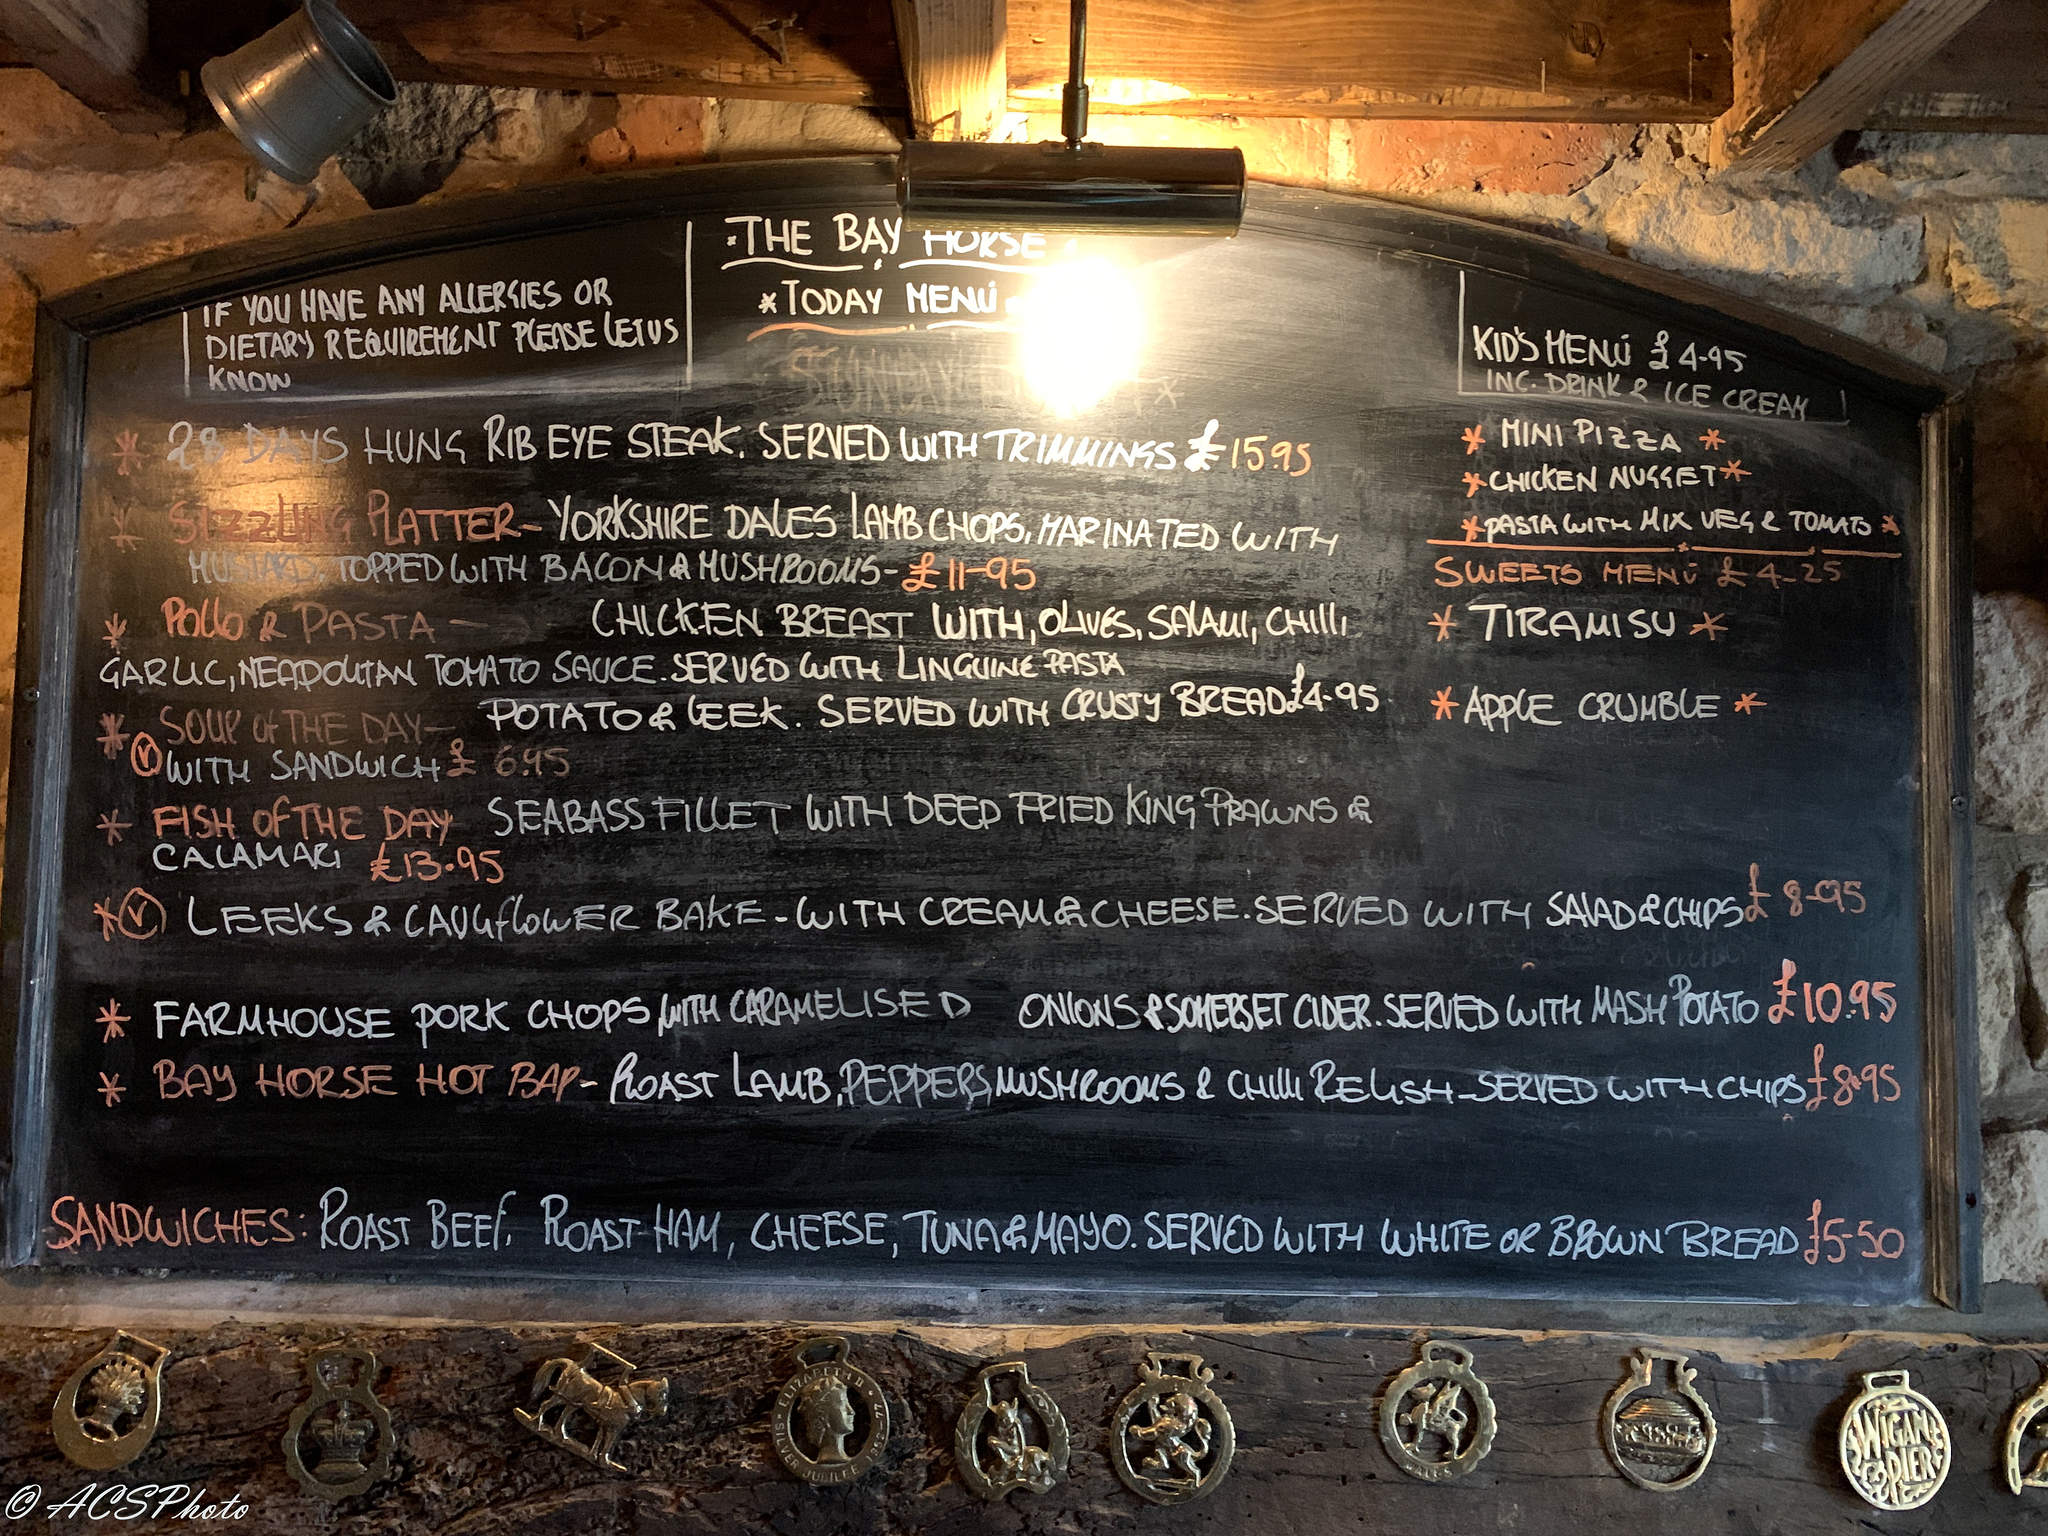 *THE BAY HORSE
*TODAY MENÙ
IF YOU HAVE ANY ALLERGIES OR
DIETARY REQUIREMENT PLEASE LET US
KNOW
KID'S MENÙ £4-95
INC. DRINK & ICE CREAM
* MINI PIZZA *
* CHICKEN NUGGET *
* PASTA WITH MIX VEG & TOMATO *
SWEETS MENÙ £4-25
* TIRAMISU *
* APPLE CRUMBLE *
* 28 DAYS HUNG RIB EYE STEAK. SERVED WITH TRIMMINGS £15.95
* SIZZLING PLATTER- YORKSHIRE DALES LAMB CHOPS, MARINATED WITH
MUSTARD, TOPPED WITH BACON & MUSHROOMS- £11-95
* Pollo & PASTA - CHICKEN BREAST WITH, OLIVES, SALAMI, CHILLI,
GARLIC, NEAPOLITAN TOMATO SAUCE. SERVED WITH LINGUINE PASTA
* SOUP OF THE DAY- POTATO & LEEK. SERVED WITH CRUSTY BREAD £4-95
(V) WITH SANDWICH £6.95
* FISH OF THE DAY SEABASS FILLET WITH DEEP FRIED KING PRAWNS &
CALAMARI £13.95
* (V) LEEKS & CAULIFLOWER BAKE - WITH CREAM & CHEESE. SERVED WITH SALAD & CHIPS £8-95
* FARMHOUSE PORK CHOPS, WITH CARAMELISED ONIONS & SOMERSET CIDER. SERVED WITH MASH POTATO £10.95
* BAY HORSE HOT BAP- ROAST LAMB, PEPPERS, MUSHROOMS & CHILLI RELISH - SERVED WITH CHIPS £8.95
SANDWICHES: ROAST BEEF, ROAST HAM, CHEESE, TUNA & MAYO. SERVED WITH WHITE OR BROWN BREAD £5-50
ELIZABETH II
SILVER JUBILEE 1952-77
WALES
WIGAN
PIER
© ACSPhoto